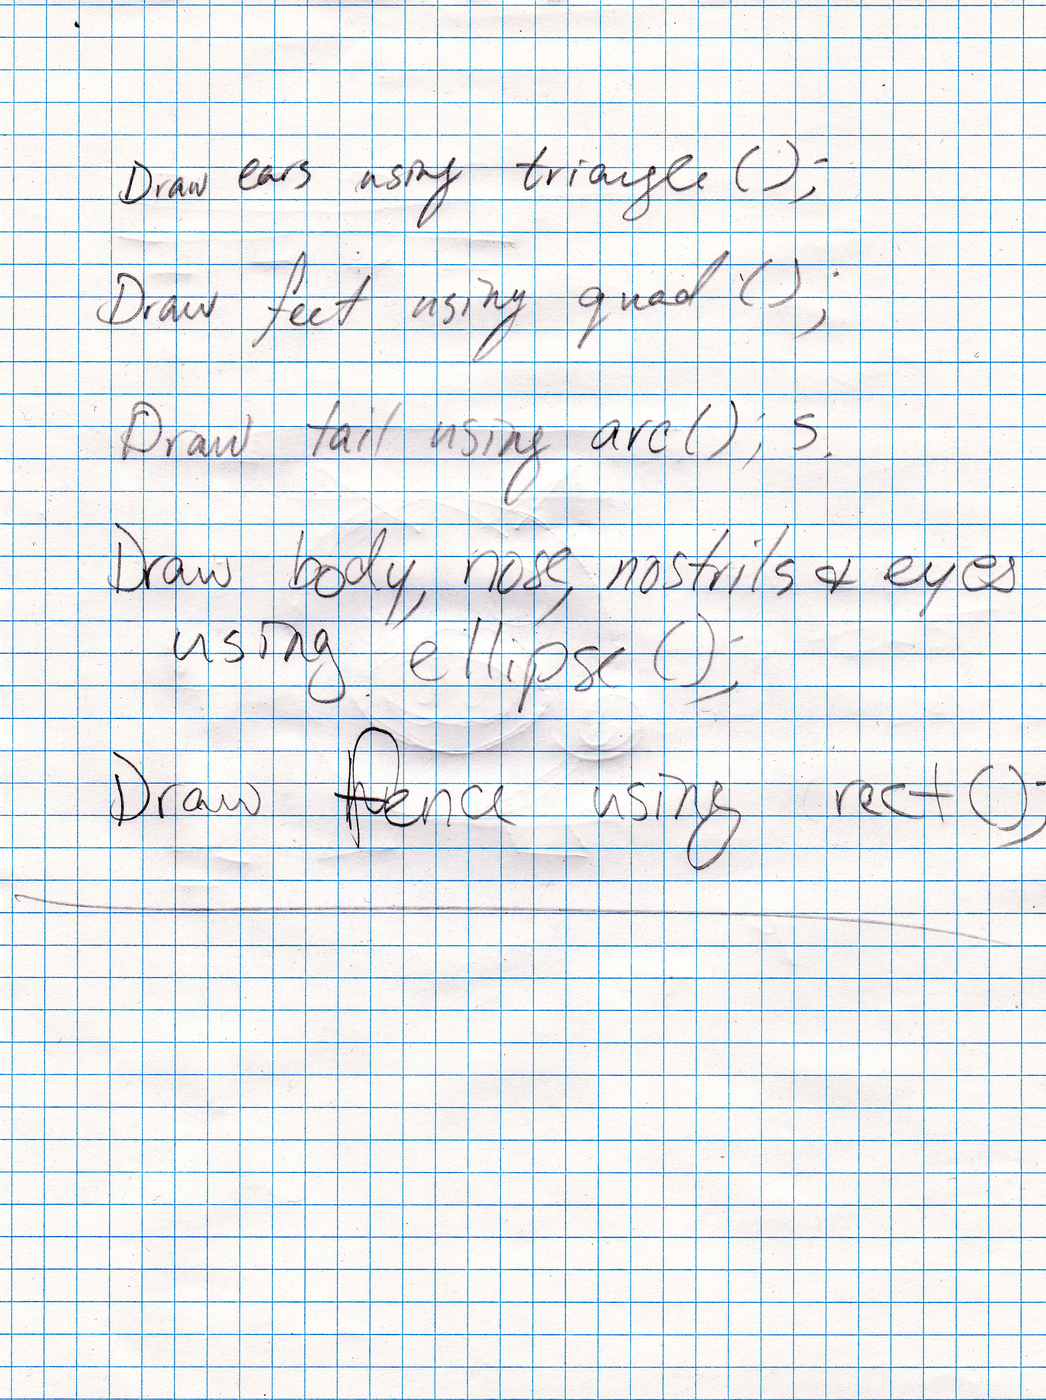 Draw ears using triangle ();
Draw feet using quad ();
Draw tail using arc(); s.
Draw body, nose, nostrils & eyes
using ellipse ();
Draw fence using rect();